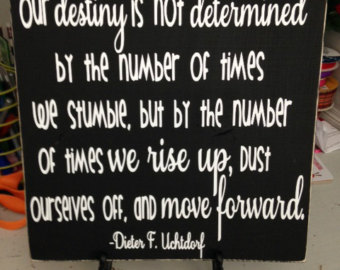 our destiny is not determined
by the number of times
we stumble, but by the number
of times we rise up, dust
ourselves off, and move forward.
-Dieter F. Uchtdorf